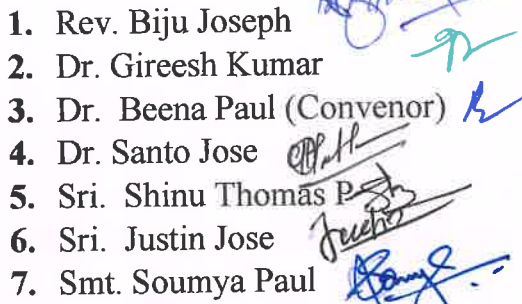 1. Rev. Biju Joseph
2. Dr. Gireesh Kumar
3. Dr. Beena Paul (Convenor)
4. Dr. Santo Jose
5. Sri. Shinu Thomas P
6. Sri. Justin Jose
7. Smt. Soumya Paul